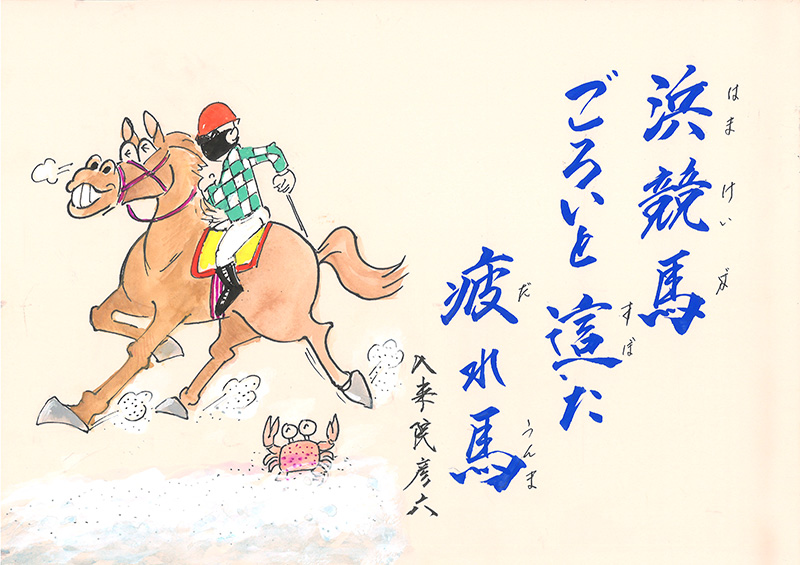 浜競馬
はま けい ば
ごろいと這た
すぼ
疲れ馬
だ うんま
入来院彦六